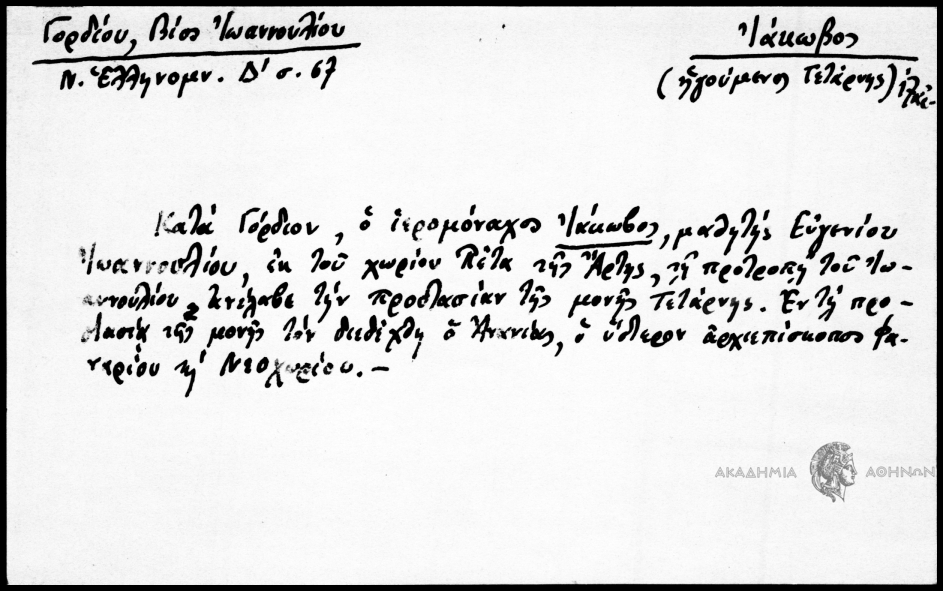 Γορδίου, Βίος Ἰωαννουλίου
Ν. Ἑλληνομν. Δ' σ. 67
Ἰάκωβος
(ἡγούμενος Τετάρνης)
Κατά Γόρδιον, ὁ ἱερομόναχος Ἰάκωβος, μαθητής Εὐγενίου
Ἰωαννουλίου, ἐκ τοῦ χωρίου Πέτα τῆς Ἄρτης, τῇ προτροπῇ τοῦ Ἰω-
αννουλίου ἀνέλαβε τήν προστασίαν τῆς μονῆς Τετάρνης. Ἐν τῇ προ-
στασίᾳ τῆς μονῆς τόν διεδέχθη ὁ Ἀνανίας, ὁ ὕστερον ἀρχιεπίσκοπος Φα-
ναρίου κ' Νεοχωρίου. –
ΑΚΑΔΗΜΙΑ ΑΘΗΝΩΝ